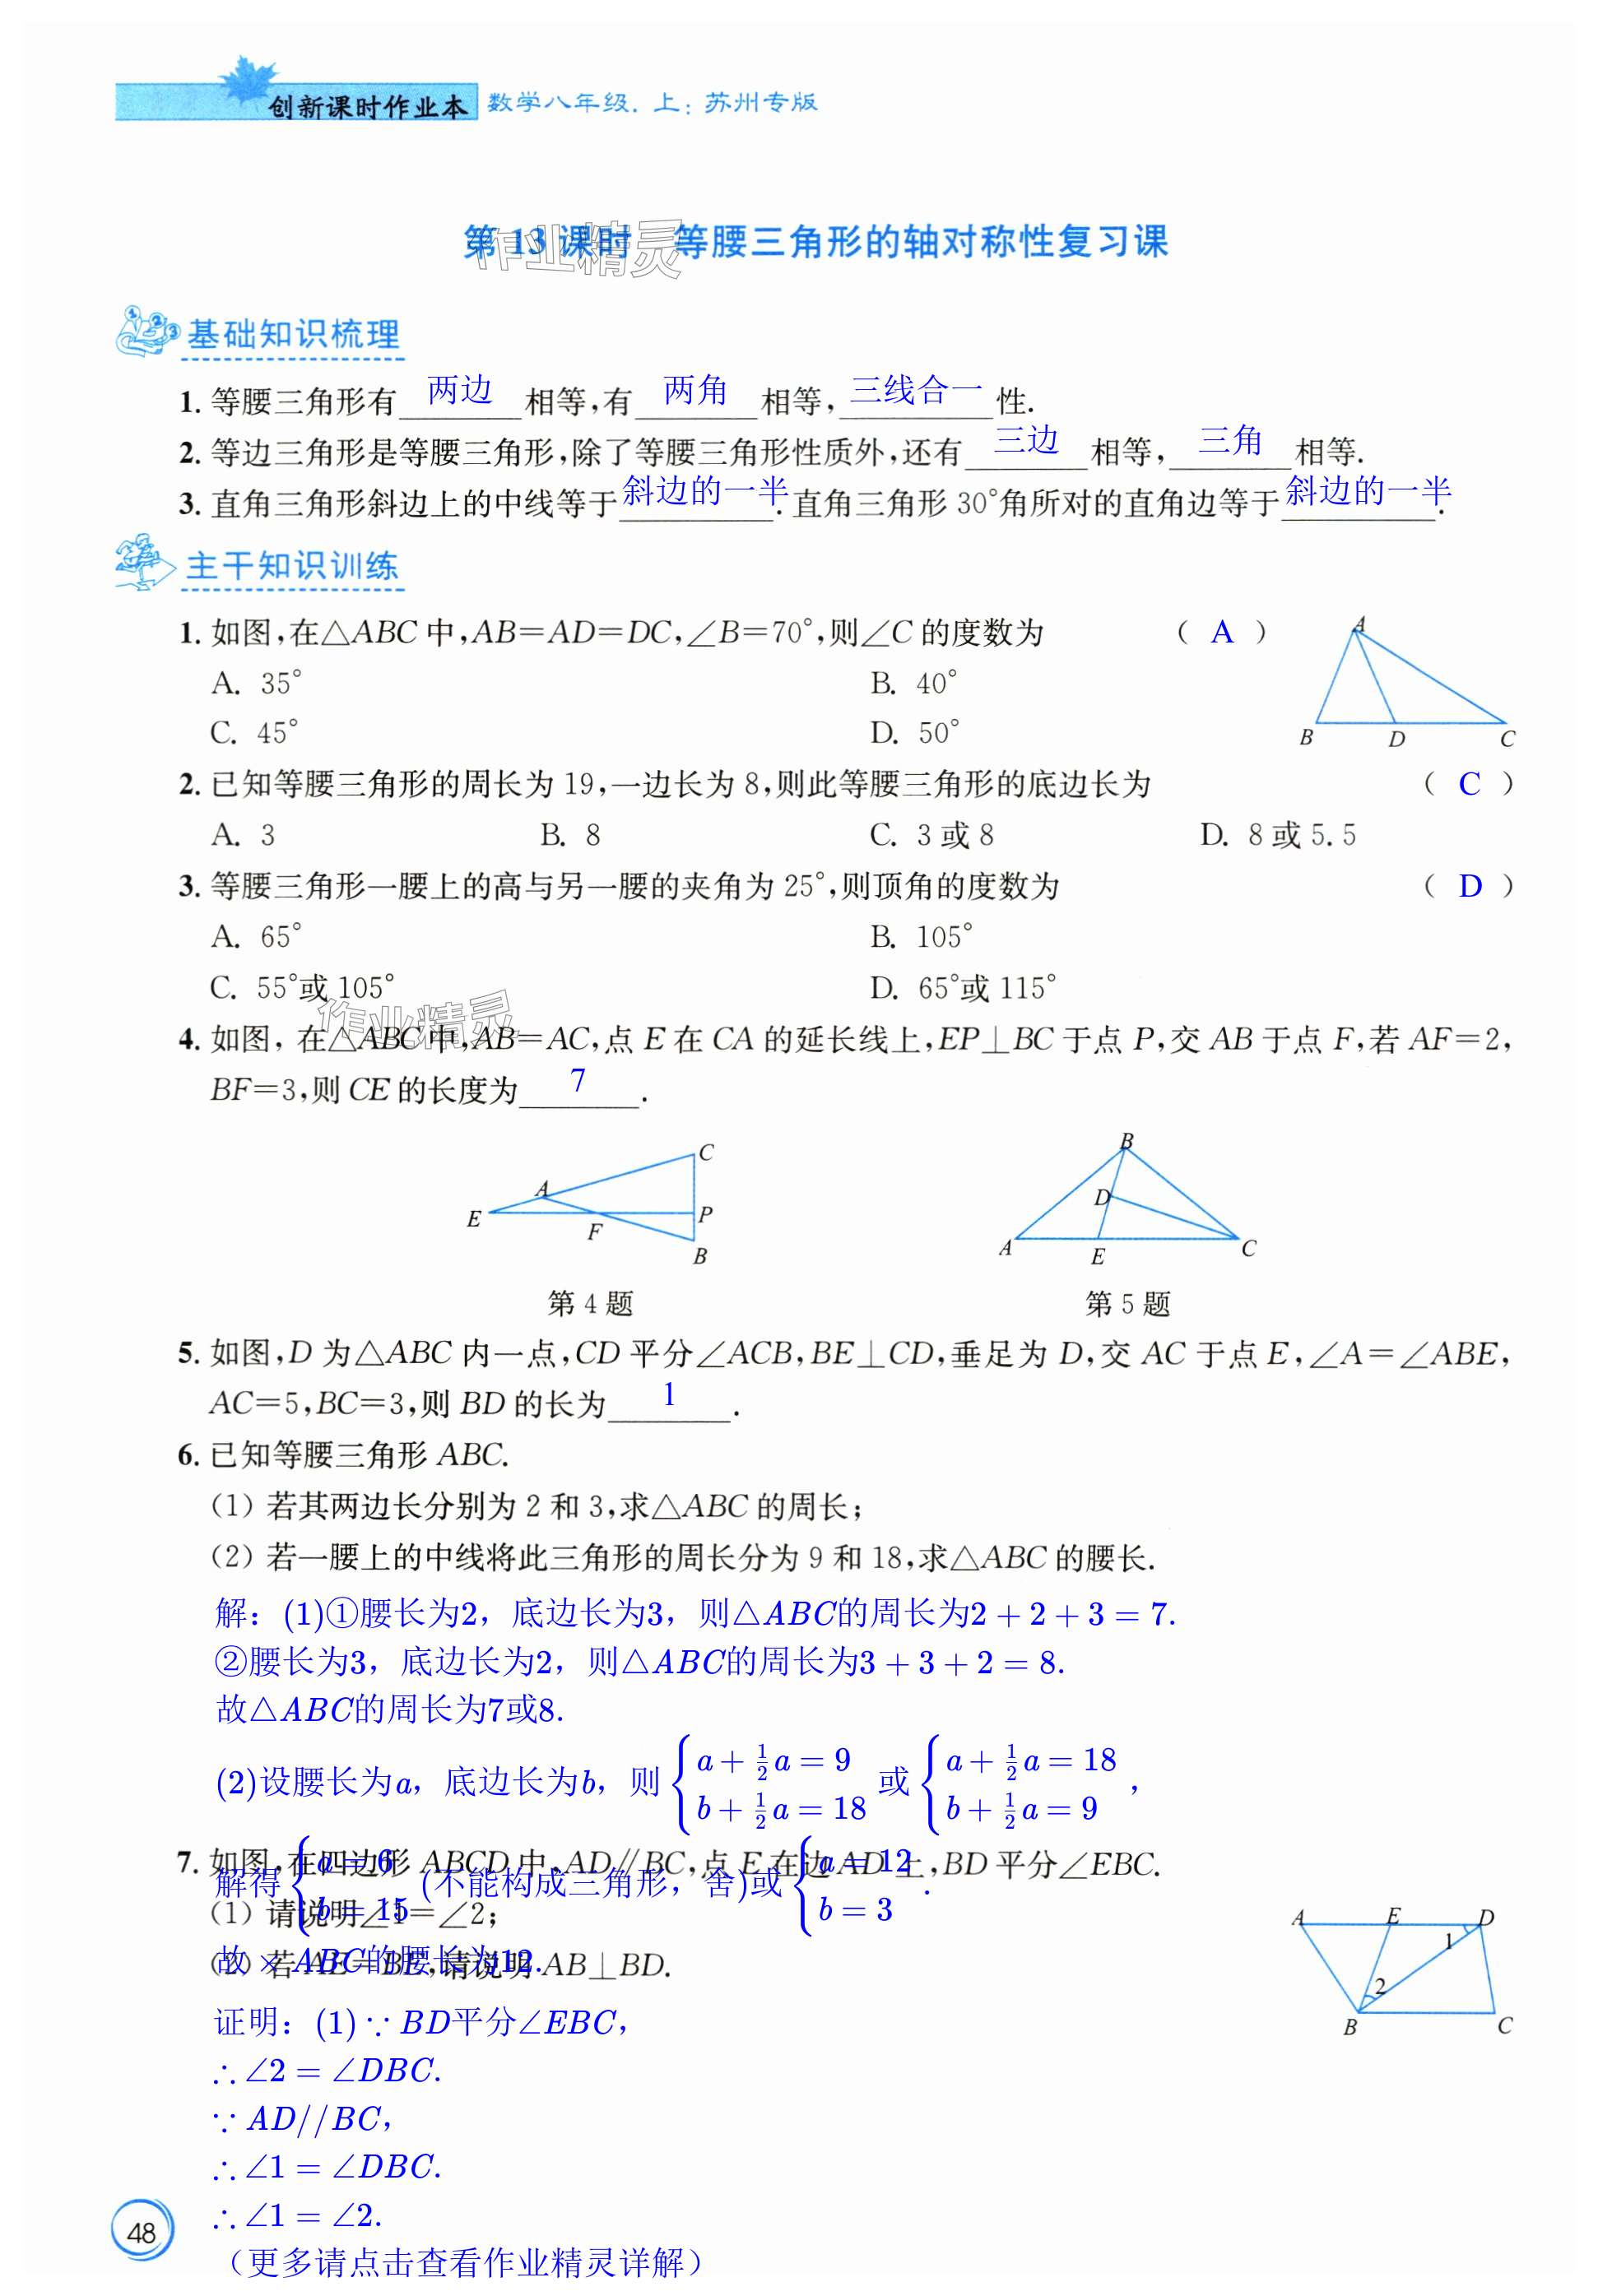 创新课时作业本 数学八年级.上:苏州专版
第13课时 等腰三角形的轴对称性复习课
作业精灵
基础知识梳理
1. 等腰三角形有 两边 相等,有 两角 相等, 三线合一 性.
2. 等边三角形是等腰三角形,除了等腰三角形性质外,还有 三边 相等, 三角 相等.
3. 直角三角形斜边上的中线等于 斜边的一半 . 直角三角形 30°角所对的直角边等于 斜边的一半 .
主干知识训练
1. 如图,在△ABC 中,AB=AD=DC,∠B=70°,则∠C 的度数为 ( A )
A. 35° B. 40°
C. 45° D. 50°
A
B D C
2. 已知等腰三角形的周长为 19,一边长为 8,则此等腰三角形的底边长为 ( C )
A. 3 B. 8 C. 3 或 8 D. 8 或 5.5
3. 等腰三角形一腰上的高与另一腰的夹角为 25°,则顶角的度数为 ( D )
A. 65° B. 105°
C. 55°或 105° D. 65°或 115°
作业精灵
4. 如图, 在△ABC 中,AB=AC,点 E 在 CA 的延长线上,EP⊥BC 于点 P,交 AB 于点 F,若 AF=2,
BF=3,则 CE 的长度为 7 .
C
A
E
F
P
B
第 4 题
B
D
A
E
C
第 5 题
5. 如图,D 为△ABC 内一点,CD 平分∠ACB,BE⊥CD,垂足为 D,交 AC 于点 E,∠A=∠ABE,
AC=5,BC=3,则 BD 的长为 1 .
6. 已知等腰三角形 ABC.
(1) 若其两边长分别为 2 和 3,求△ABC 的周长;
(2) 若一腰上的中线将此三角形的周长分为 9 和 18,求△ABC 的腰长.
解：(1)①腰长为2，底边长为3，则△ABC的周长为2+2+3=7.
②腰长为3，底边长为2，则△ABC的周长为3+3+2=8.
故△ABC的周长为7或8.
(2)设腰长为a，底边长为b，则 { a+1/2a=9 b+1/2a=18 或 { a+1/2a=18 b+1/2a=9 ，
解得 { a=6 b=15 (不能构成三角形，舍)或 { a=12 b=3 .
故×ABC的腰长为12.
7. 如图,在四边形 ABCD 中,AD∥BC,点 E 在边 AD 上,BD 平分∠EBC.
(1) 请说明∠1=∠2;
(2) 若 AE=BE,请说明 AB⊥BD.
A E D
1
2
B C
证明：(1)∵BD平分∠EBC，
∴∠2=∠DBC.
∵AD//BC，
∴∠1=∠DBC.
∴∠1=∠2.
（更多请点击查看作业精灵详解）
48